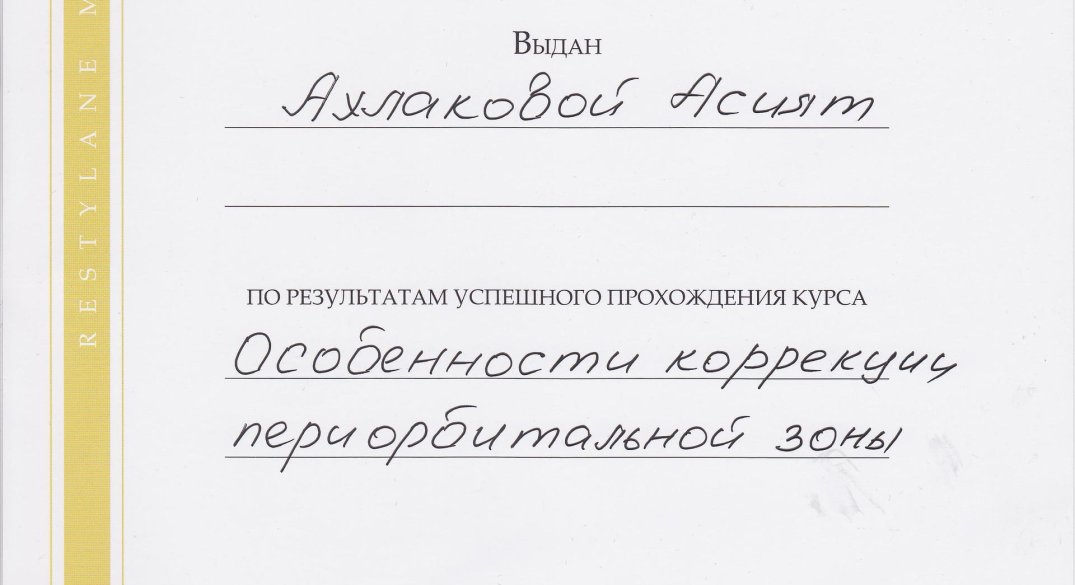 Выдан
Ахлаковой Асият
ПО РЕЗУЛЬТАТАМ УСПЕШНОГО ПРОХОЖДЕНИЯ КУРСА
Особенности коррекции
периорбитальной зоны
RESTYLANE M